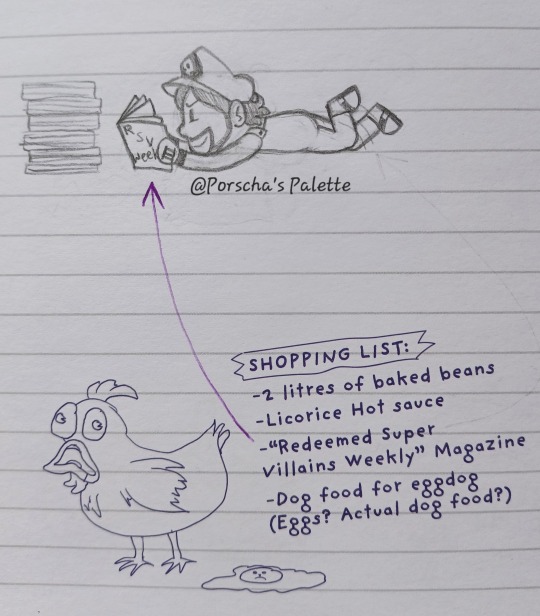 RSV
Week
@Porscha's Palette
SHOPPING LIST:
-2 litres of baked beans
-Licorice Hot sauce
-"Redeemed Super
Villains Weekly" Magazine
-Dog food for eggdog
(Eggs? Actual dog food?)